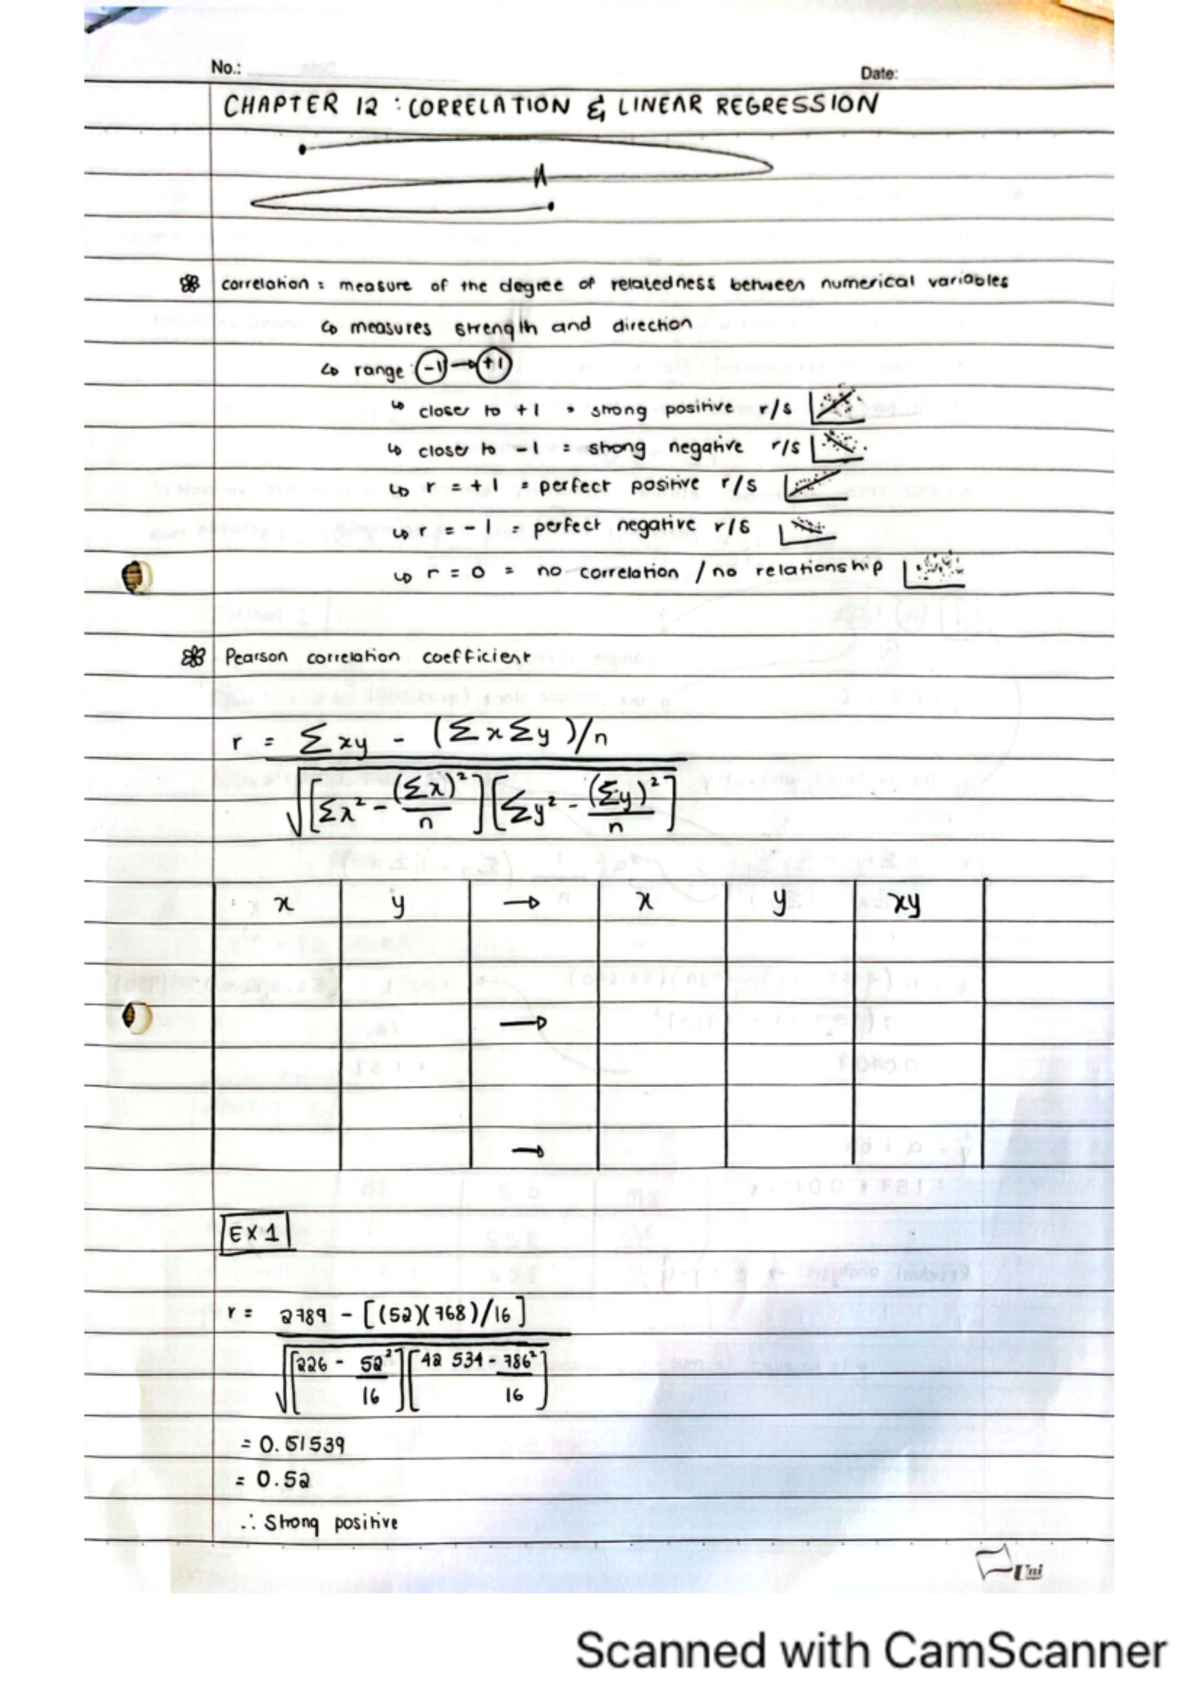 No.:
Date:
CHAPTER 12 : CORRELATION & LINEAR REGRESSION
correlation : measure of the degree of relatedness between numerical variables
↳ measures strength and direction
↳ range : -1 → +1
↳ closer to +1 = strong positive r/s
↳ closer to -1 = strong negative r/s
↳ r = +1 = perfect positive r/s
↳ r = -1 = perfect negative r/s
↳ r = 0 = no correlation / no relationship
Pearson correlation coefficient
r = Σxy - (ΣxΣy)/n
√[Σx² - (Σx)²/n][Σy² - (Σy)²/n]
x y → x y xy
→
→
EX 1
r = 2789 - [(52)(768)/16]
√[226 - 52²/16][42 534 - 786²/16]
= 0.51539
= 0.52
∴ Strong positive
Uni
Scanned with CamScanner